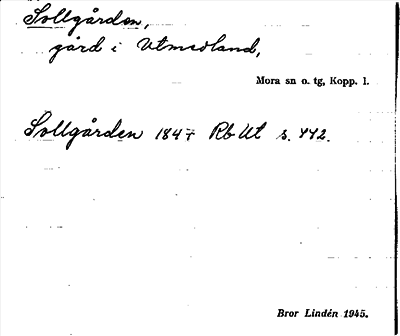 Sollgården,
gård i Utmedland,
Mora sn o. tg, Kopp. l.
Sollgården 1847 Rb Ut s. 442.
Bror Lindén 1945.